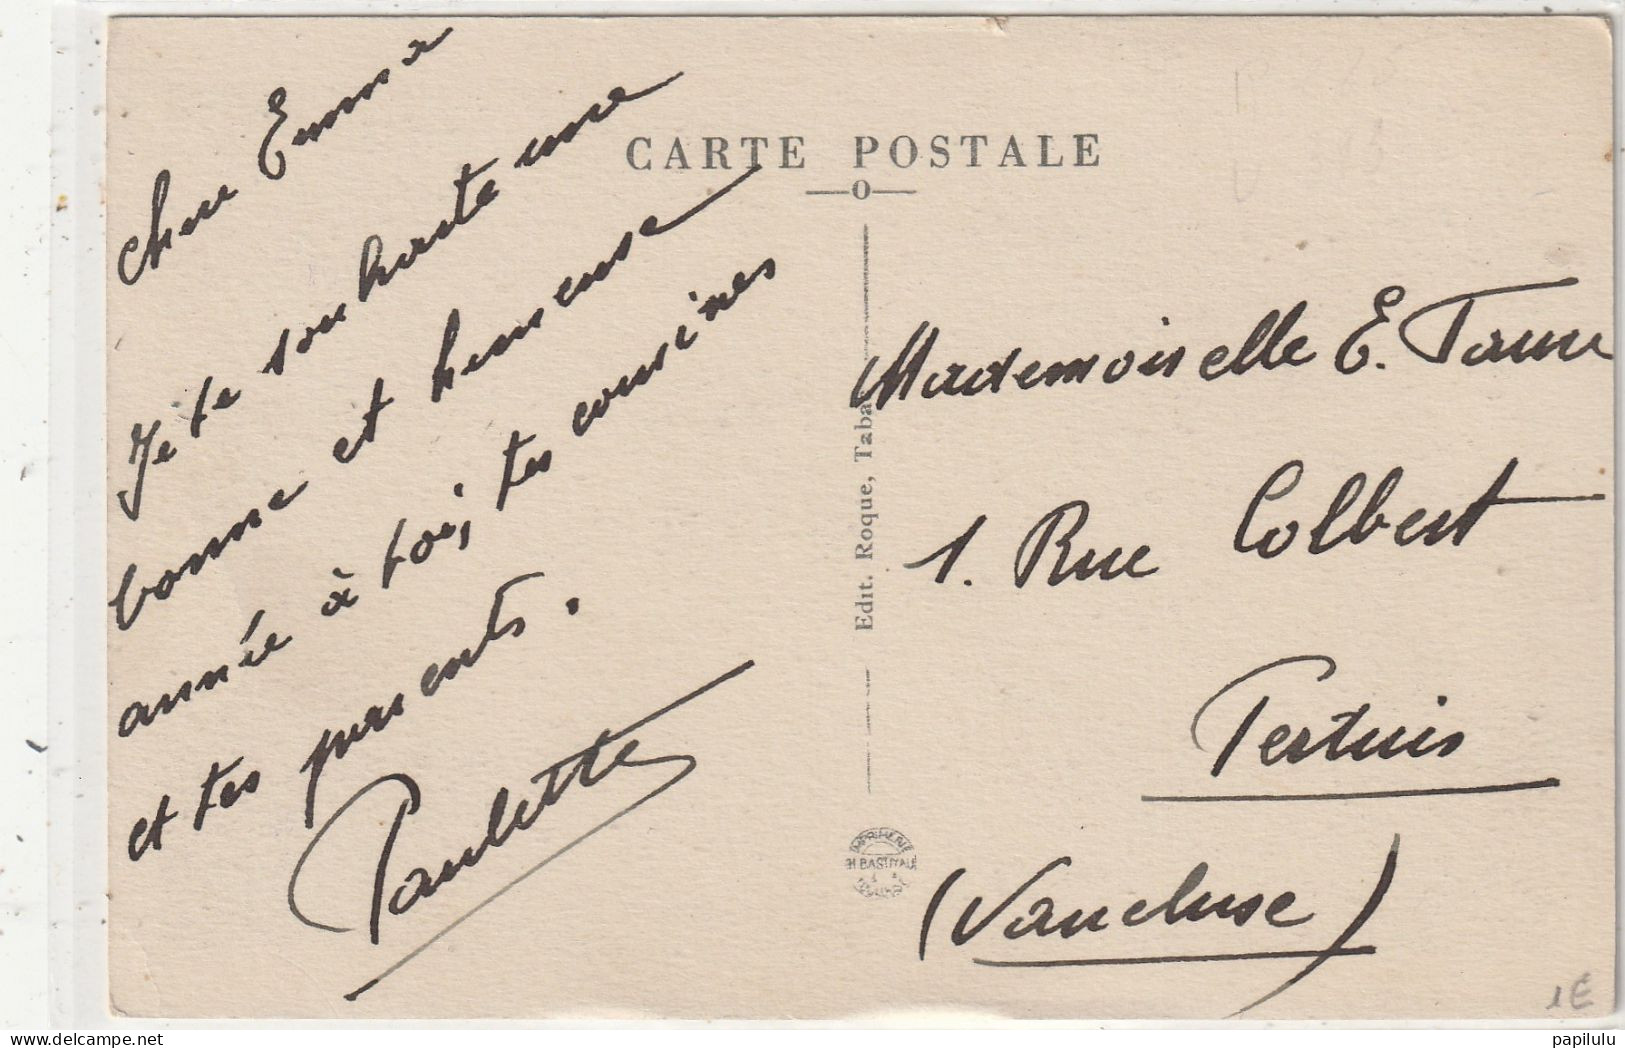 CARTE POSTALE
chère Emma
Je te souhaite une
bonne et heureuse
année à toi, tes cousines
et tes parents.
Paulette
Edit. Roque, Taba
Mademoiselle E.
1. Rue Colbert
Pertuis
(Vaucluse)
IMPRIMERIE
1E
papilulu